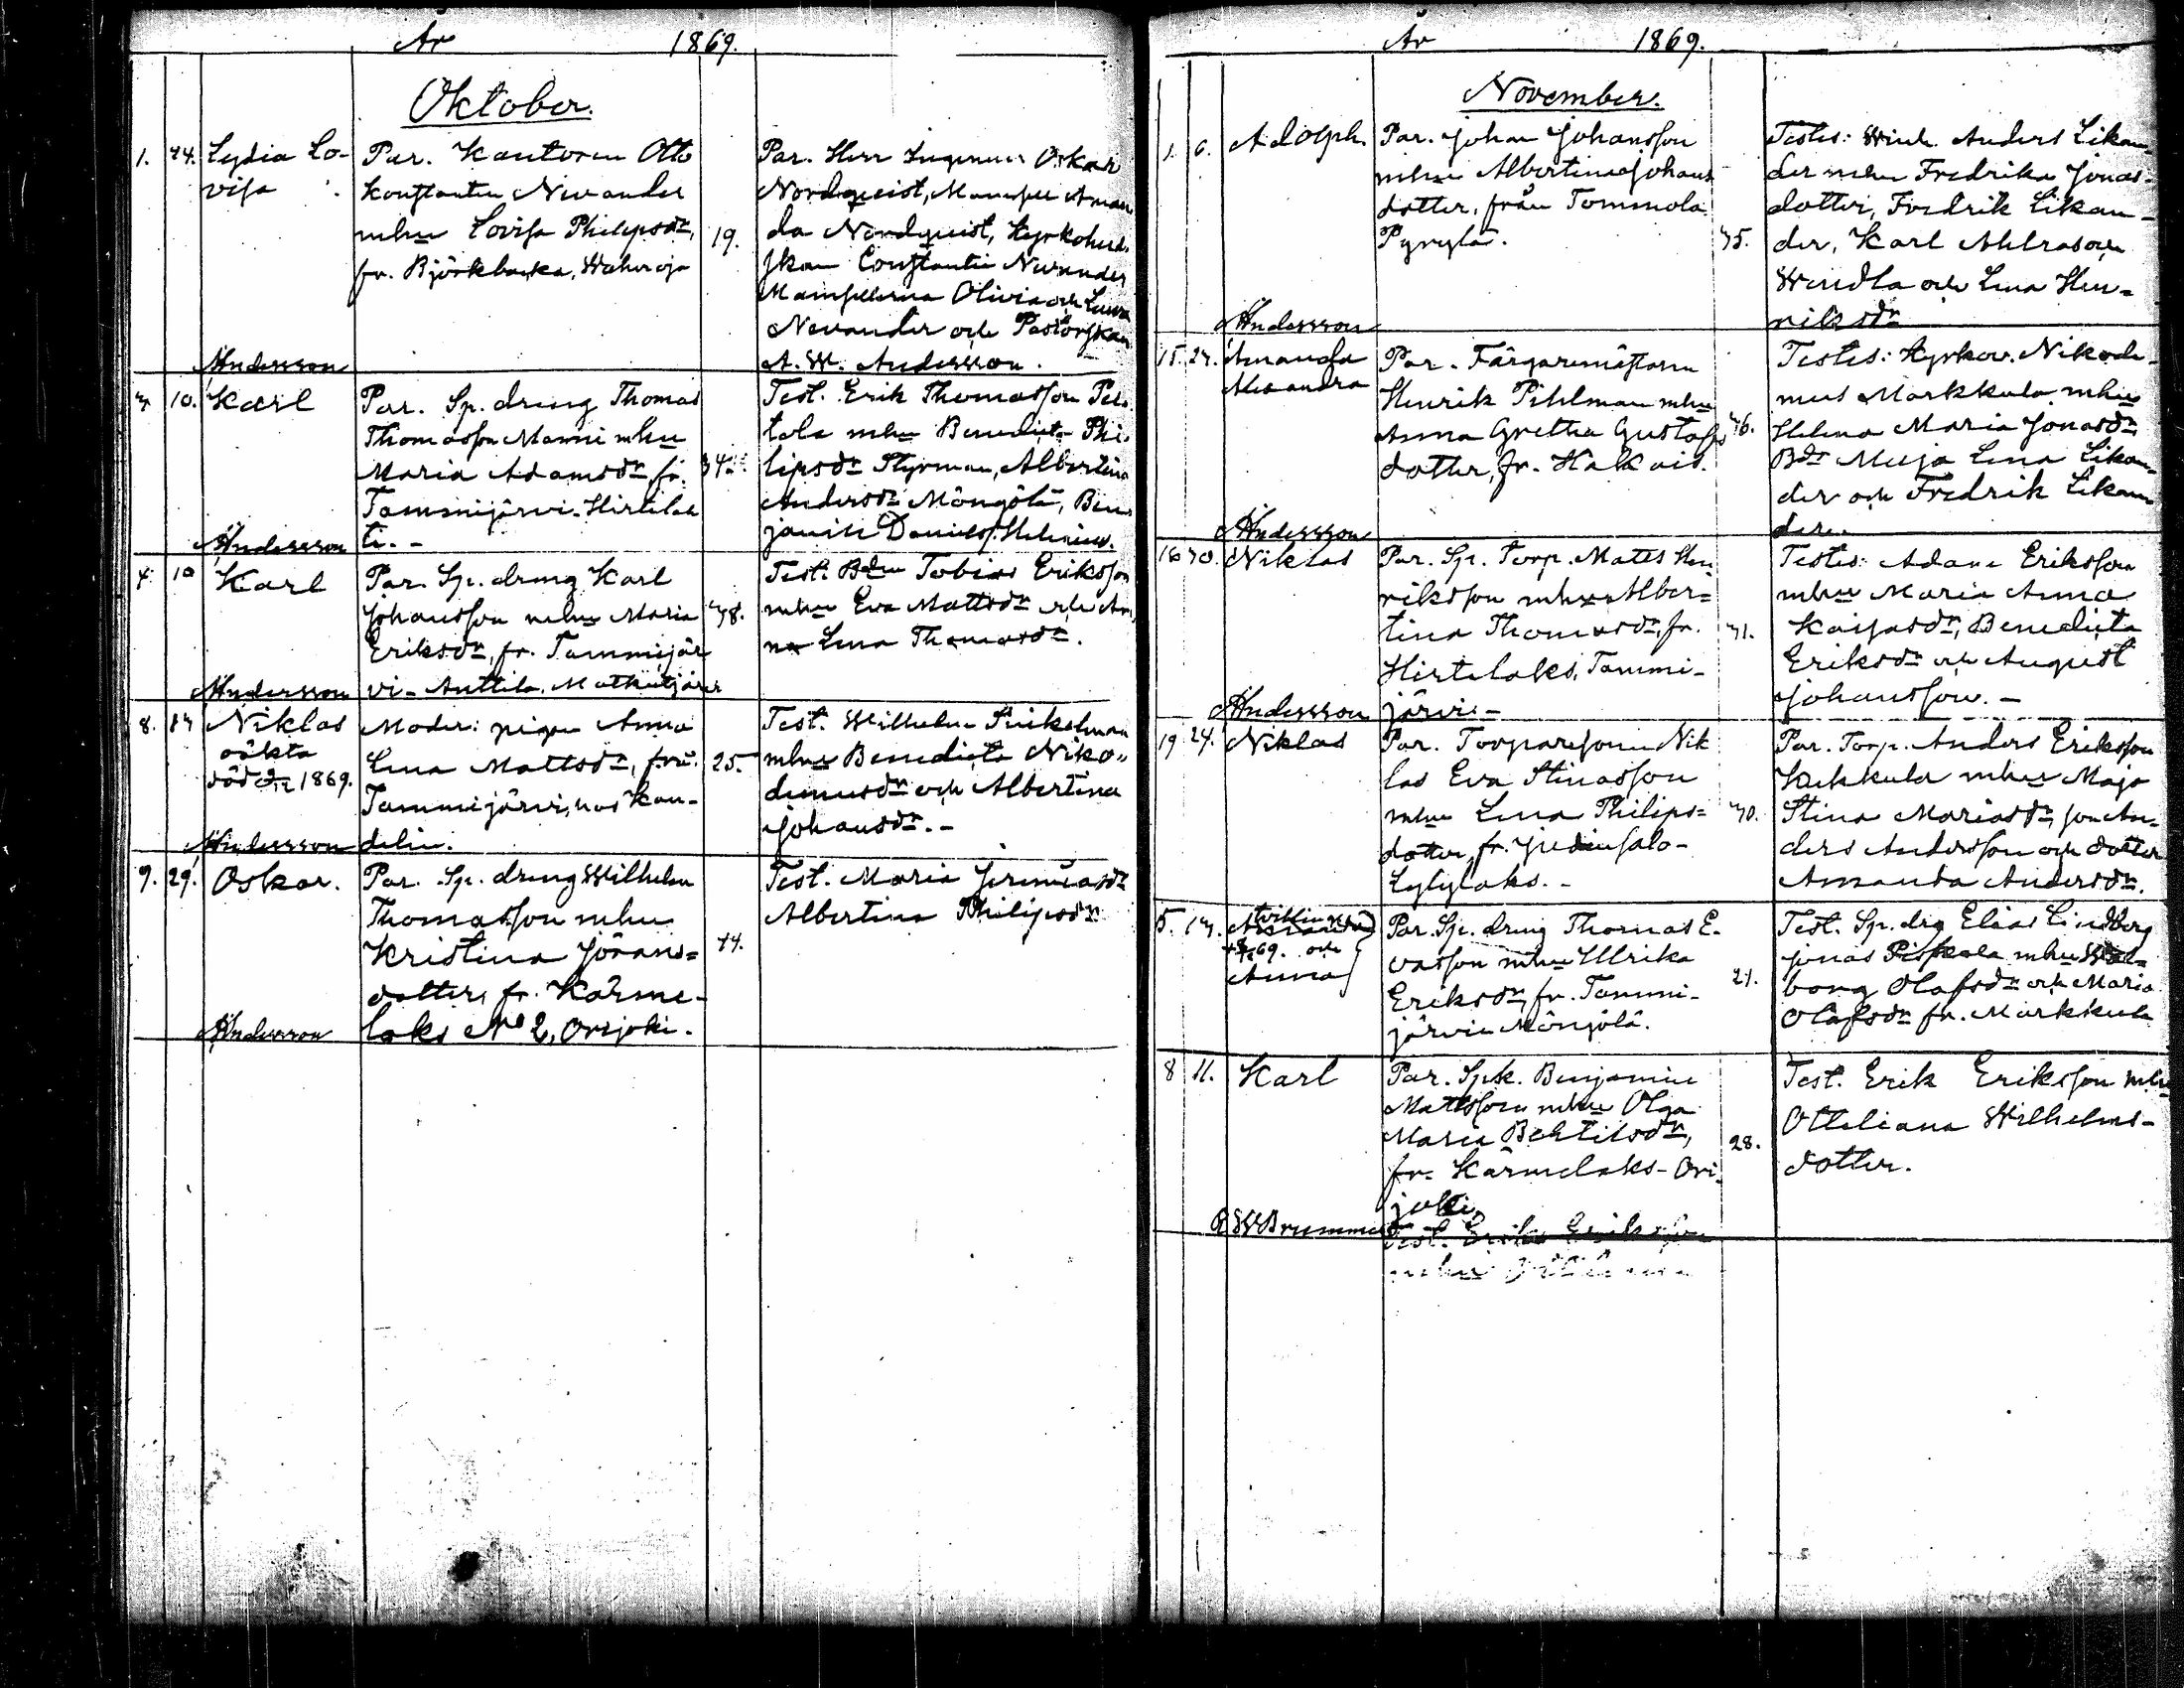 År 1869.
Oktober.
1. 24. Lydia Lo-
visa
Par. Kantorn Otto
Konstantin Nevander
mhu Lovisa Philipsdr,
fr. Björkbacka, Wahuoja
19.
Par. Herr Ingeniör Oskar
Nordqvist, Mamsell Aman
da Nordqvist, Kyrkoherd.
skan Constantin Nevander
Mamsellerna Olivia och Lina
Nevander och Pastorskan
A. W. Andersson.
Andersson
10. Karl
Par. Sp. dreng Thomas
Thomasson Manni mhu
Maria Adamsdr, fr.
Tammijärvi-Hirtilak
ti. -
34.
Test. Erik Thomasson Pel-
tola mhu Benedicta Phi-
lipsdr Styrman, Albertina
Andersdr Möngölä, Ben-
jamin Daniels. Helenius.
Andersson
4. 10 Karl
Par. Sp. dreng Karl
Johansson mhu Maria
Eriksdr, fr. Tammijär
vi- Anttila, Matkutjärvi
38.
Test. Bdn Tobias Eriksson
mhu Eva Mattsdr och An
na Lena Thomasdr.
Andersson
8. 17 Niklas
oäkta
död 1869.
Moder: pigan Anna
Lena Mattsdr, från
Tammijärvi, hos Kan-
delin.
25.
Test. Wilhelm
mhu Benedicta Niko-
demusdr och Albertina
Johansdr. -
Andersson
9. 29. Oskar.
Par. Sp. dreng Wilhelm
Thomasson mhu
Kristina Jörans=
dotter, fr. Kärme-
laks No 2, Orijoki.
44.
Test. Maria Jeremiasdr
Albertina Philipsdr
Andersson
År 1869.
November.
1. 6. Adolph.
Par. Johan Johansson
mhu Albertina Johans
dotter, från Tommola
Pyrylä.
35.
Testes: Anders Likan-
der mhu Fredrika Jonas-
dotter, Fredrik Likan-
der, Karl Ahlrason
Wendla och Lena Hen=
riksdr
Andersson
15. 24. Amanda
Alexandra
Par. Färgaremästarn
Henrik Pihlman mhu
Anna Gretha Gustafs
dotter, fr. Hakois.
36.
Testes: Kyrkov. Nikode-
mus Markkula mhu
Helena Maria Jonasdr
Bdr Meija Lena Likan-
der och Fredrik Likan
der.
Andersson
16 30. Niklas
Par. Sp. torp. Matts Hen
riksson mhu Alber=
tina Thomasdr, fr.
Hirtelaks, Tammi-
järvi. -
31.
Testes: Adam Eriksson
mhu Maria Anna
Kaisasdr, Benedicta
Eriksdr och August
Johansson. -
Andersson
19 24. Niklas
Par. Torparesonen Nik
las Eva Stinasson
mhu Lena Philips=
dotter, fr. Jredinsalo-
Lylylaks. -
30.
Par. Torp. Anders Eriksson
Kukkula mhu Maja
Stina Mariasdr, son An-
ders Andersson och dotter
Amanda Andersdr.
5. 17. tvillingar
Amanda
69. och
Anna
Par. Sp. dreng Thomas E-
vasson mhu Ulrika
Eriksdr, fr. Tammi-
järvi Möngölä.
21.
Test. Sp. drg Elias Lindberg
Jonas Piskola mhu Wal-
borg Olafsdr och Maria
Olafsdr fr. Markkula
8 11. Karl
Par. Spk. Benjamin
Mattsson mhu Olga
Maria Behtilsdr,
fr. Kärmelaks- Ori-
joki.
28.
Test. Erik Eriksson mhu
Otteliana Wilhelms-
dotter.
Test. Erik Eriksson
mhu